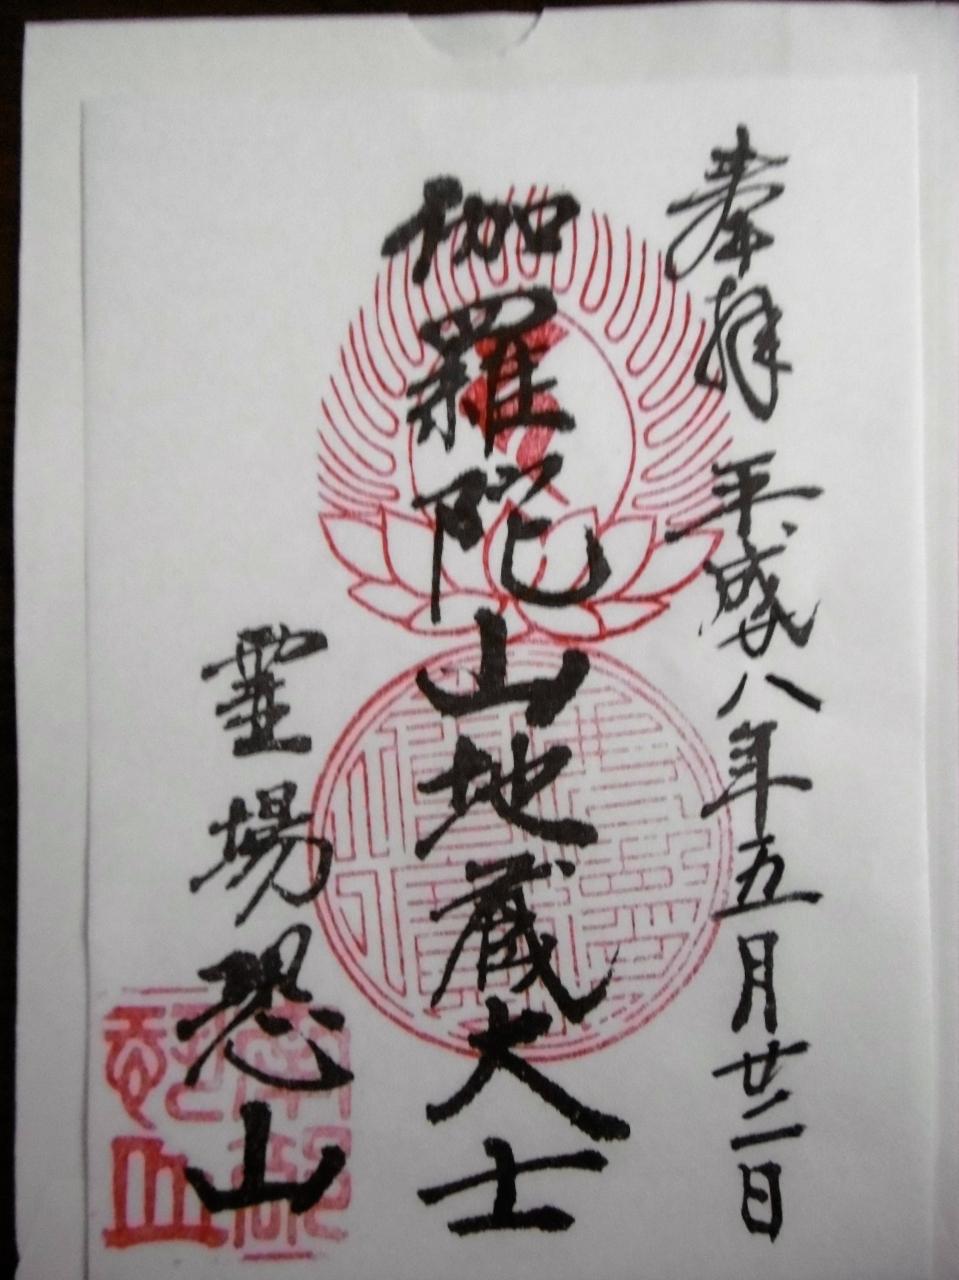 奉拝 平成八年五月廿二日
伽羅陀山地蔵大士
霊場恐山